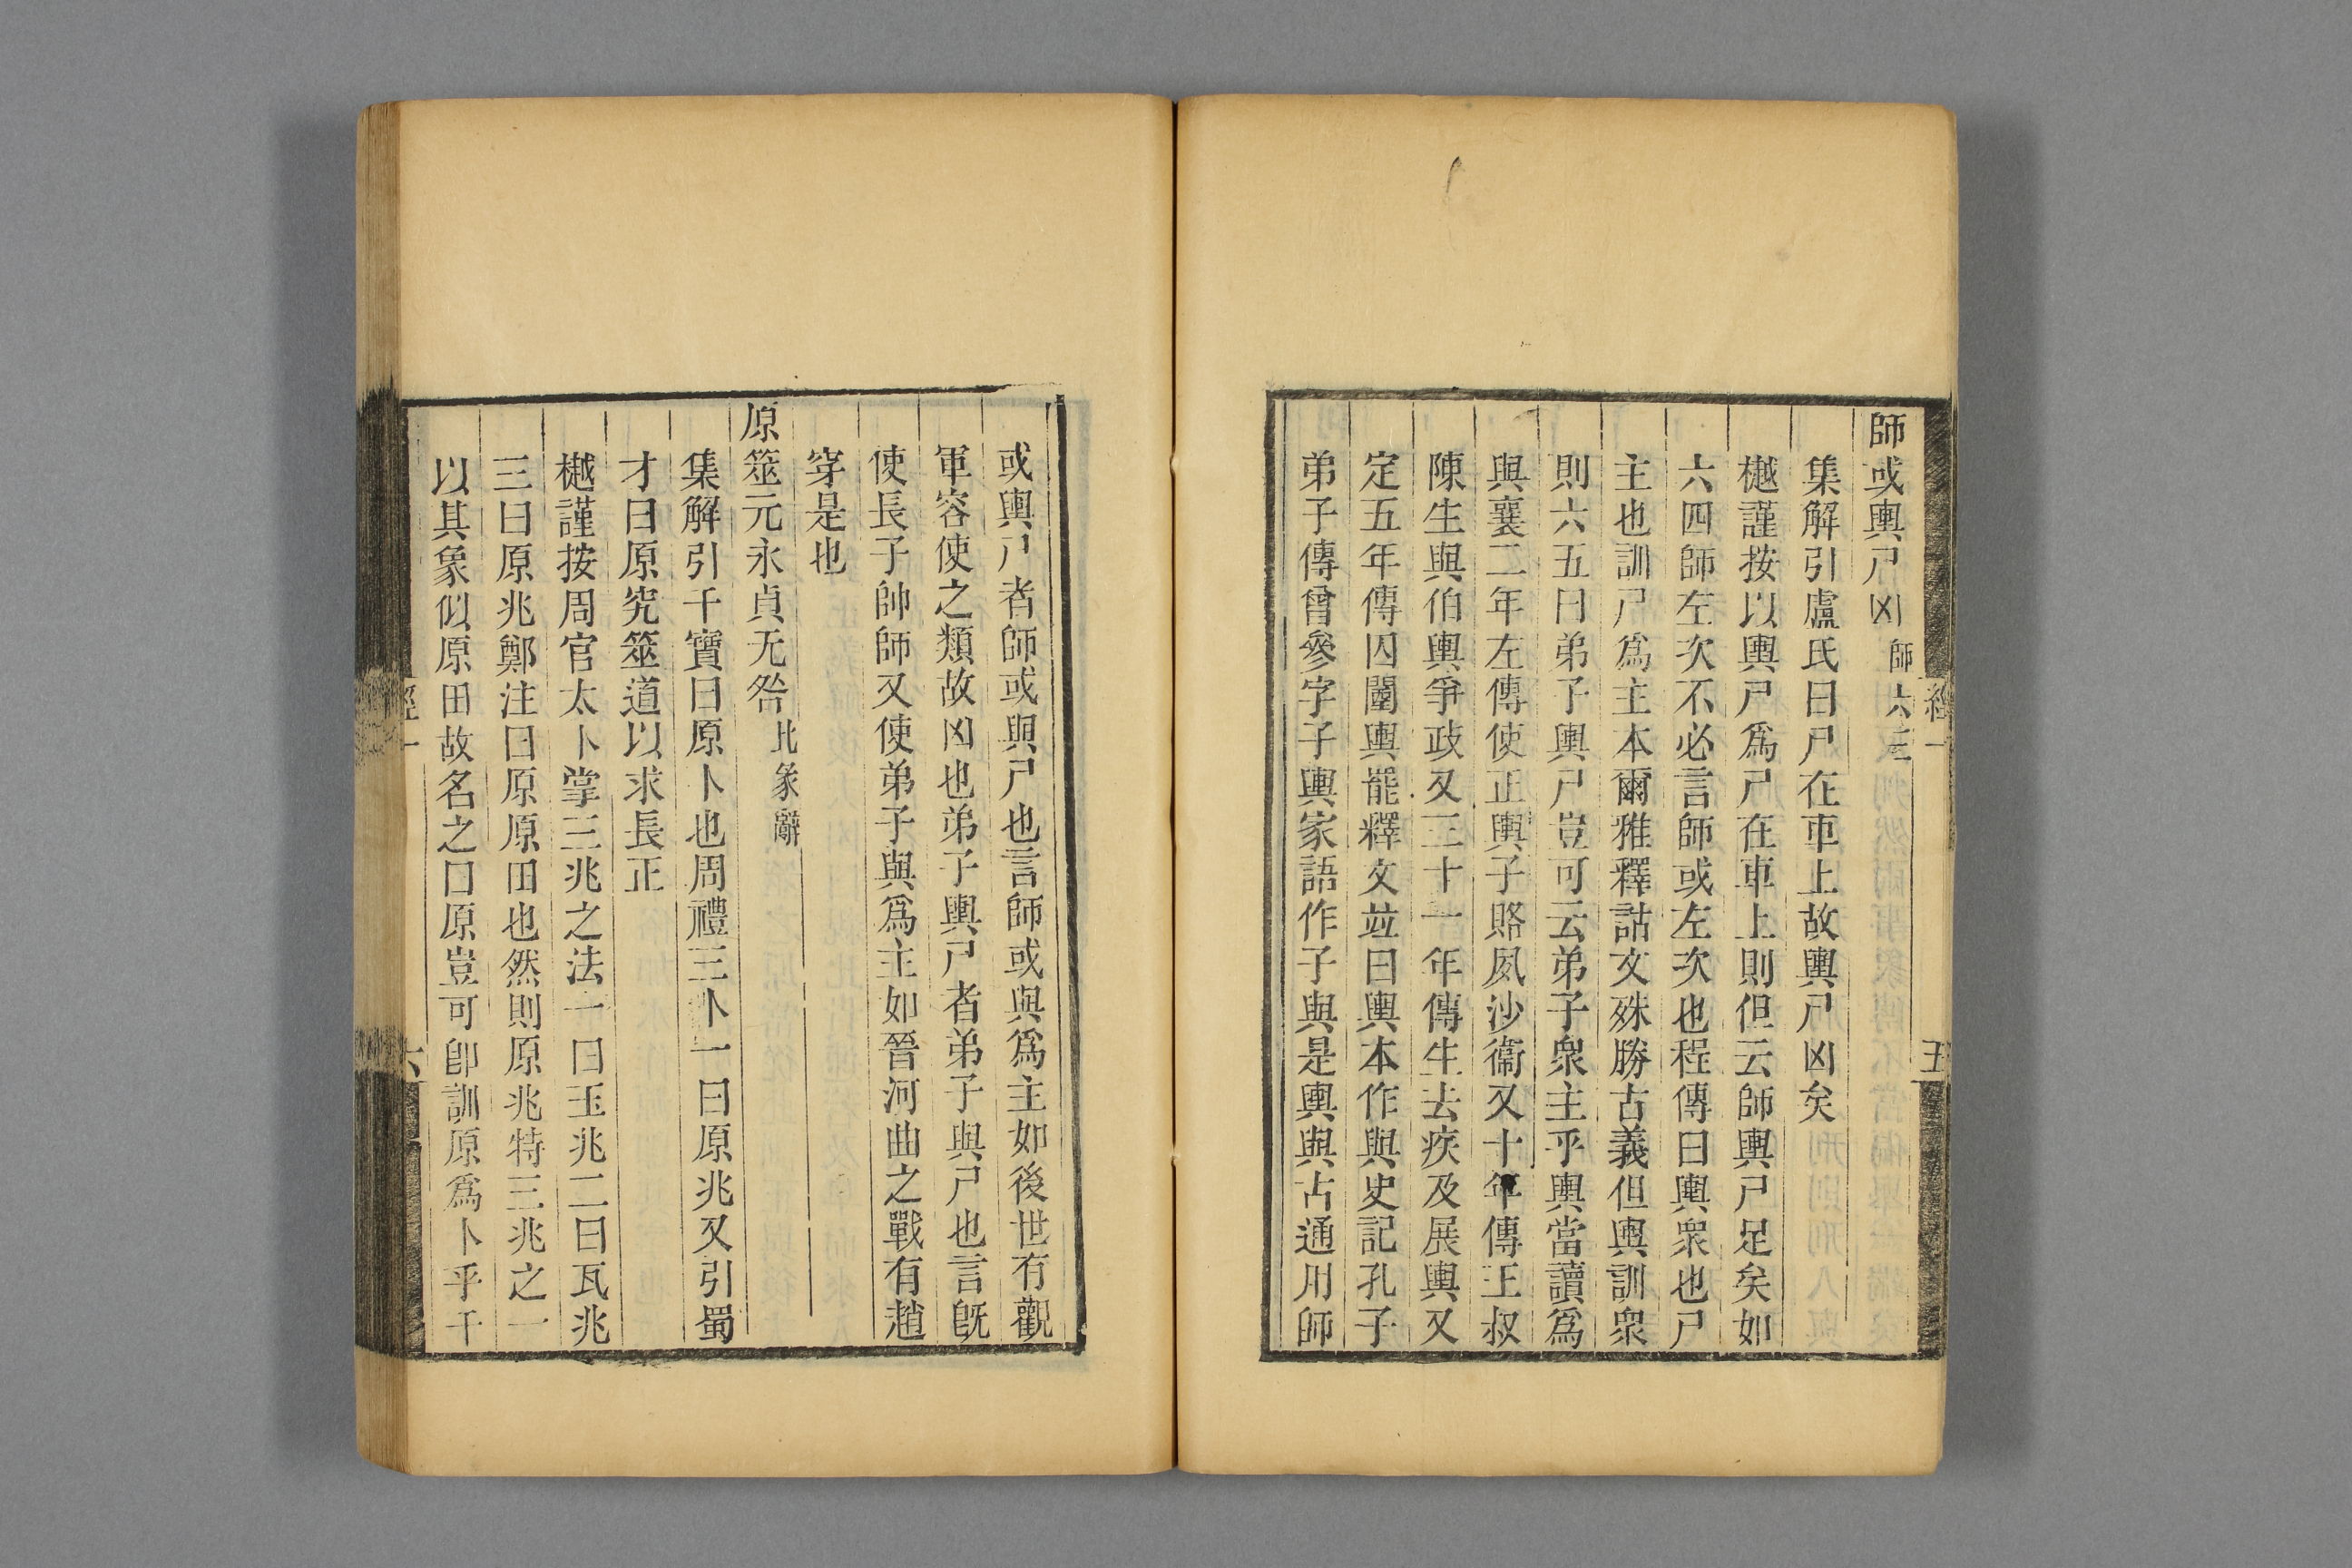 師或輿尸凶師六三
集解引盧氏曰尸在車上故輿尸凶矣
樾謹按以輿尸爲尸在車上則但云師輿尸足矣如
六四師左次不必言師或左次也程傳曰輿衆也尸
主也訓尸爲主本爾雅釋詁文殊勝古義但輿訓衆
則六五曰弟子輿尸豈可云弟子衆主乎輿當讀爲
與襄二年左傳使正輿子賂夙沙衞又十年傳王叔
陳生與伯輿爭政又三十一年傳生去疾及展輿又
定五年傳囚闉輿罷釋文竝曰輿本作與史記孔子
弟子傳曾參字子輿家語作子與是輿與古通用師
經一
五
或輿尸者師或與尸也言師或與爲主如後世有觀
軍容使之類故凶也弟子輿尸者弟子與尸也言旣
使長子帥師又使弟子與爲主如晉河曲之戰有趙
穿是也
原筮元永貞无咎比彖辭
集解引干寶曰原卜也周禮三卜一曰原兆又引蜀
才曰原究筮道以求長正
樾謹按周官太卜掌三兆之法一曰玉兆二曰瓦兆
三曰原兆鄭注曰原原田也然則原兆特三兆之一
以其象似原田故名之曰原豈可卽訓原爲卜乎干
經一
六